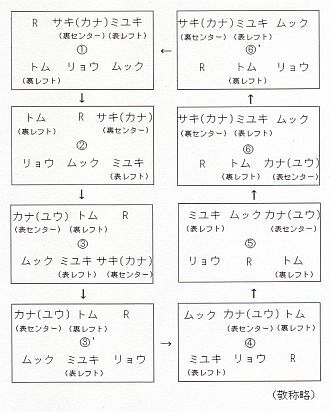 R サキ(カナ)ミユキ
(裏センター)(表レフト)
①
トム リョウ ムック
(裏レフト)
↓
トム R サキ(カナ)
(裏レフト) (裏センター)
②
リョウ ムック ミユキ
(表レフト)
↓
カナ(ユウ)トム R
(表センター)(裏レフト)
③
ムック ミユキ サキ(カナ)
(表レフト)(裏センター)
↓
カナ(ユウ)トム R
(表センター)(裏レフト)
③'
ムック ミユキ リョウ
(表レフト)
→
ムック カナ(ユウ)トム
(表センター)(裏レフト)
④
ミユキ リョウ R
(表レフト)
↑
ミユキ ムック カナ(ユウ)
(表レフト) (表センター)
⑤
リョウ R トム
(裏レフト)
↑
サキ(カナ)ミユキ ムック
(裏センター)(表レフト)
⑥
R トム カナ(ユウ)
(裏レフト)(表センター)
↑
サキ(カナ)ミユキ ムック
(裏センター)(表レフト)
⑥'
R トム リョウ
(裏レフト)
←
(敬称略)